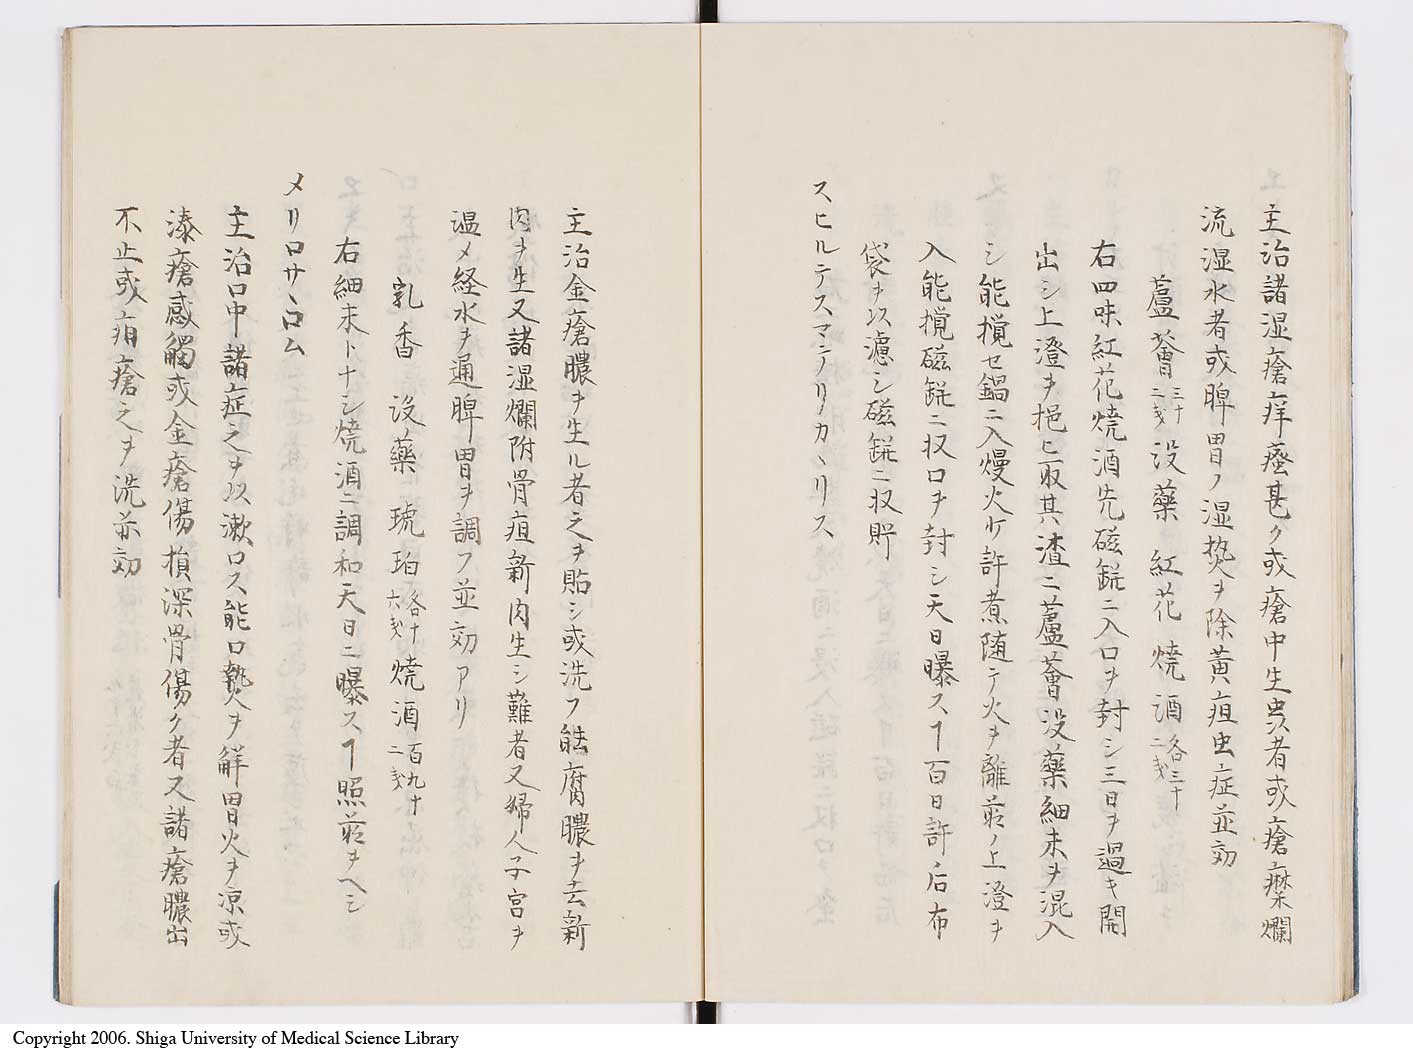 主治諸湿瘡痒瘙甚ク或瘡中生虫者或瘡糜爛
流湿水者或脾胃ノ湿熱ヲ除黄疸虫症並効
蘆薈三十二戔 没薬 紅花 焼酒各三十二戔
右四味紅花焼酒先磁鋩ニ入口ヲ封シ三日ヲ過キ開
出シ上澄ヲ挹ヒ取其渣ニ蘆薈没薬細末ヲ混入
シ能撹セ鍋ニ入熳火ケ許煮随テ火ヲ離前ノ上澄ヲ
入能撹磁鋩ニ収口ヲ封シ天日曝スヿ百日許后布
袋ヲ以濾シ磁鋩ニ収貯
スヒルテスマテリカヽリス
主治金瘡膿ヲ生ル者之ヲ貼シ或洗フ能腐膿ヲ去新
肉ヲ生又諸湿爛附骨疽新肉生シ難者又婦人子宮ヲ
温メ経水ヲ通脾胃ヲ調フ並効アリ
乳香 没薬 琥珀各十六戔 焼酒百九十二戔
右細末トナシ焼酒ニ調和天日ニ曝スヿ照前ヲヘシ
メリロサヽロム
主治口中諸症之ヲ以漱ロス能口熱ヲ解胃火ヲ凉或
漆瘡感觸或金瘡傷損深骨傷ク者又諸瘡膿出
不止或疳瘡之ヲ洗並効
Copyright 2006. Shiga University of Medical Science Library